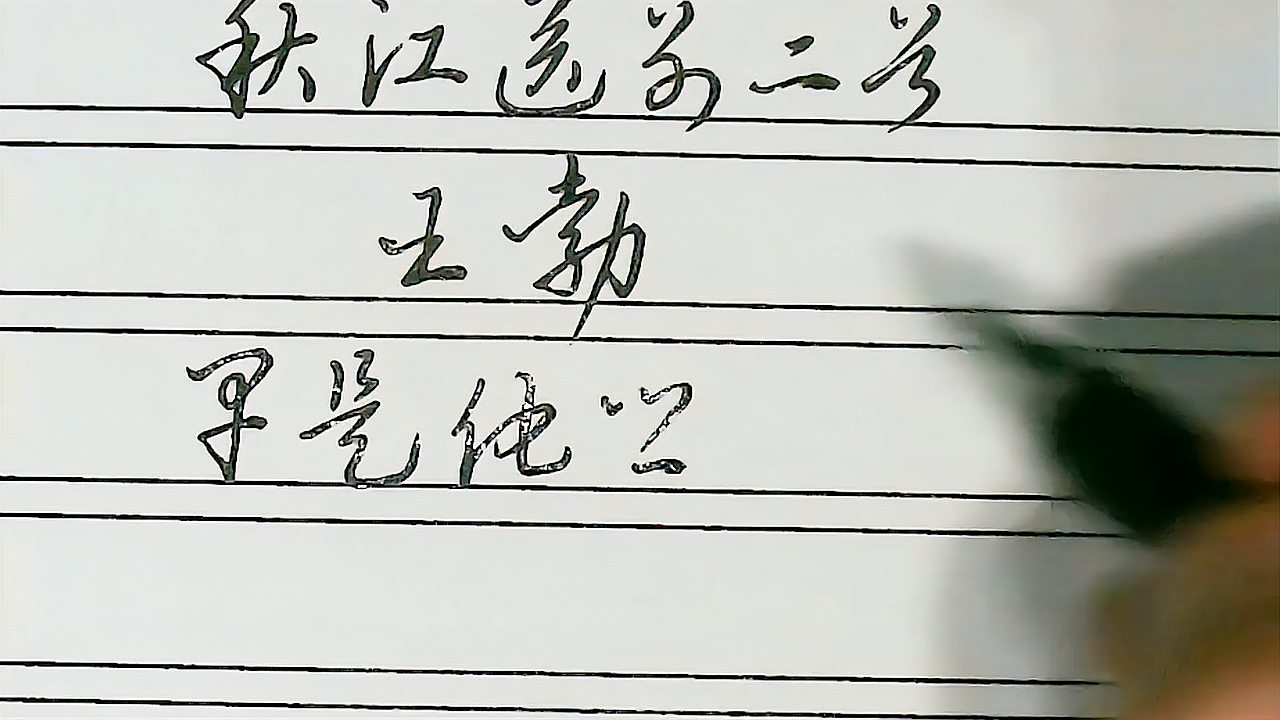 秋江送别二首
王勃
早是他